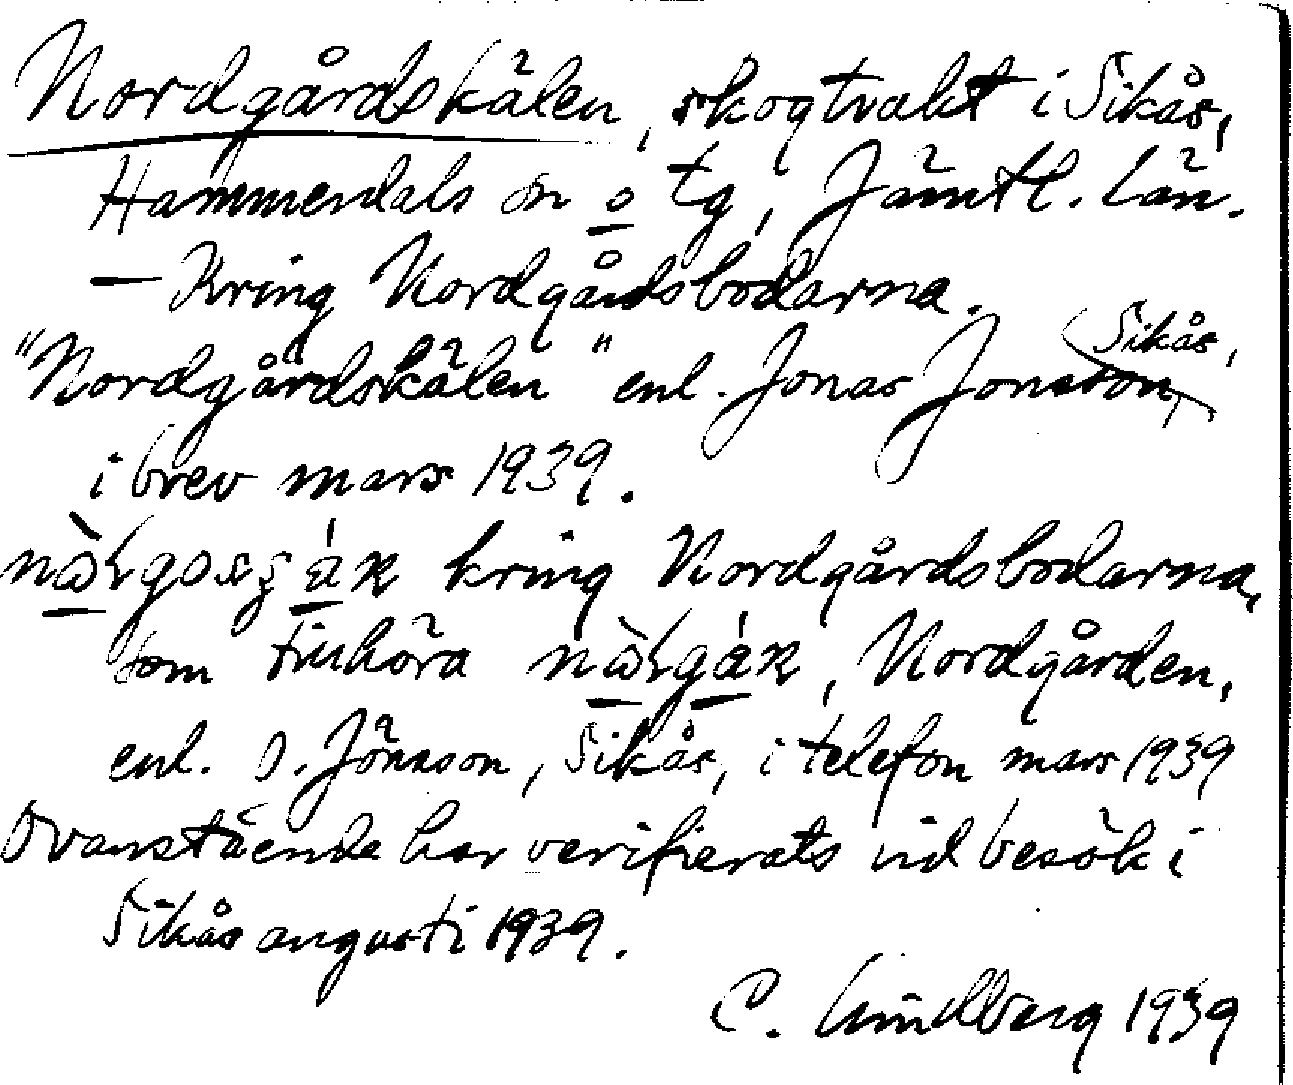 Nordgårdskälen, skogtrakt i Sikås,
Hammerdals sn o tg, Jämtl. län.
— Kring Nordgårdsbodarna.
"Nordgårdskälen" enl. Jonas Jonsson, Sikås,
i brev mars 1939.
kring Nordgårdsbodarna,
som tillhöra Nordgården,
enl. J. Jönsson, Sikås, i telefon mars 1939
Ovanstående har verifierats vid besök i
Sikås augusti 1939.
C. Lindberg 1939